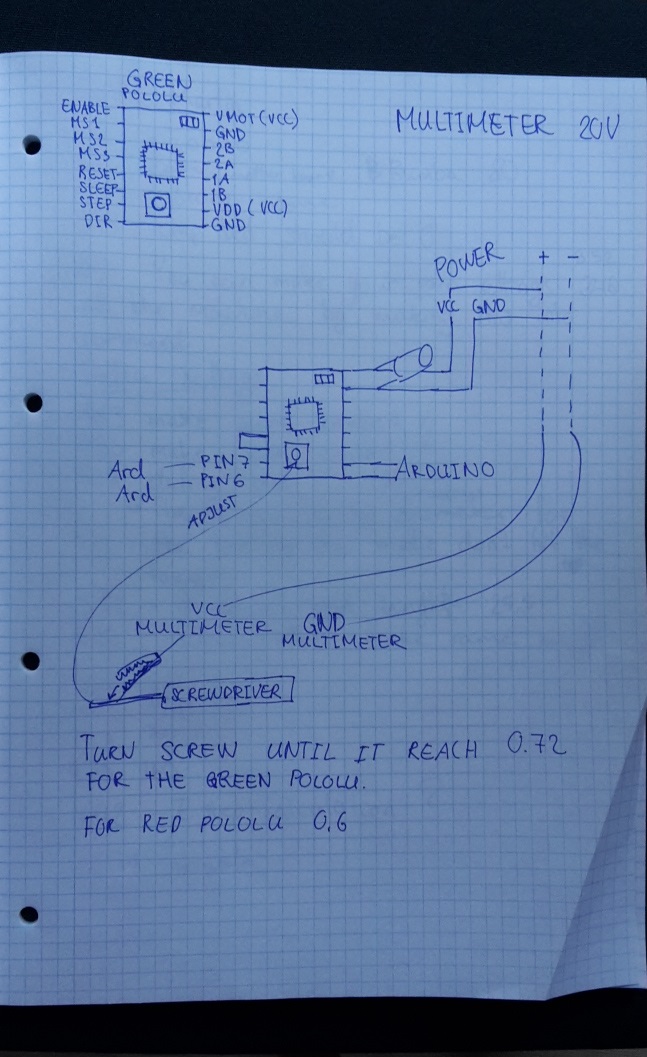 GREEN
POLOLU
MULTIMETER 20V
ENABLE
MS1
MS2
MS3
RESET
SLEEP
STEP
DIR
VMOT (VCC)
GND
2B
2A
1A
1B
VDD (VCC)
GND
POWER + -
VCC GND
Ard PIN7
Ard PIN6
ARDUINO
ADJUST
VCC
MULTIMETER
GND
MULTIMETER
SCREWDRIVER
TURN SCREW UNTIL IT REACH 0.72
FOR THE GREEN POLOLU.
FOR RED POLOLU 0.6